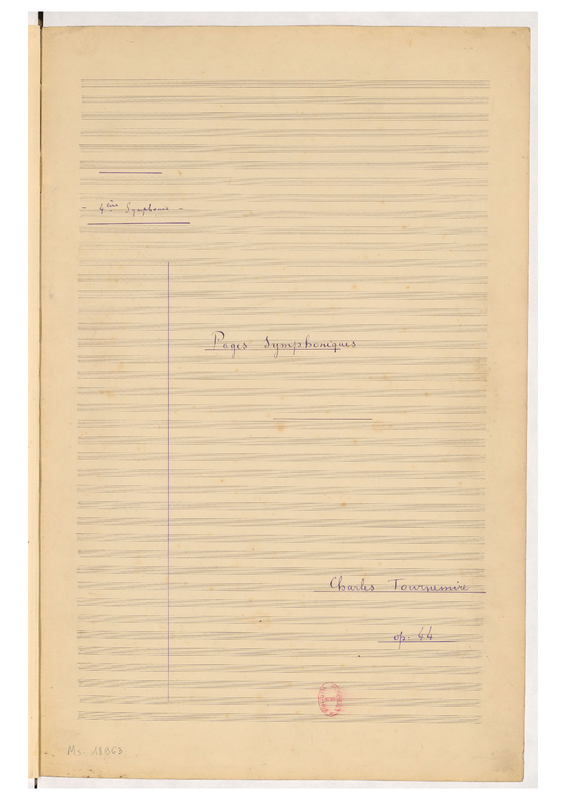 - 4ème Symphonie -
Pages Symphoniques
Charles Tournemire
op. 44